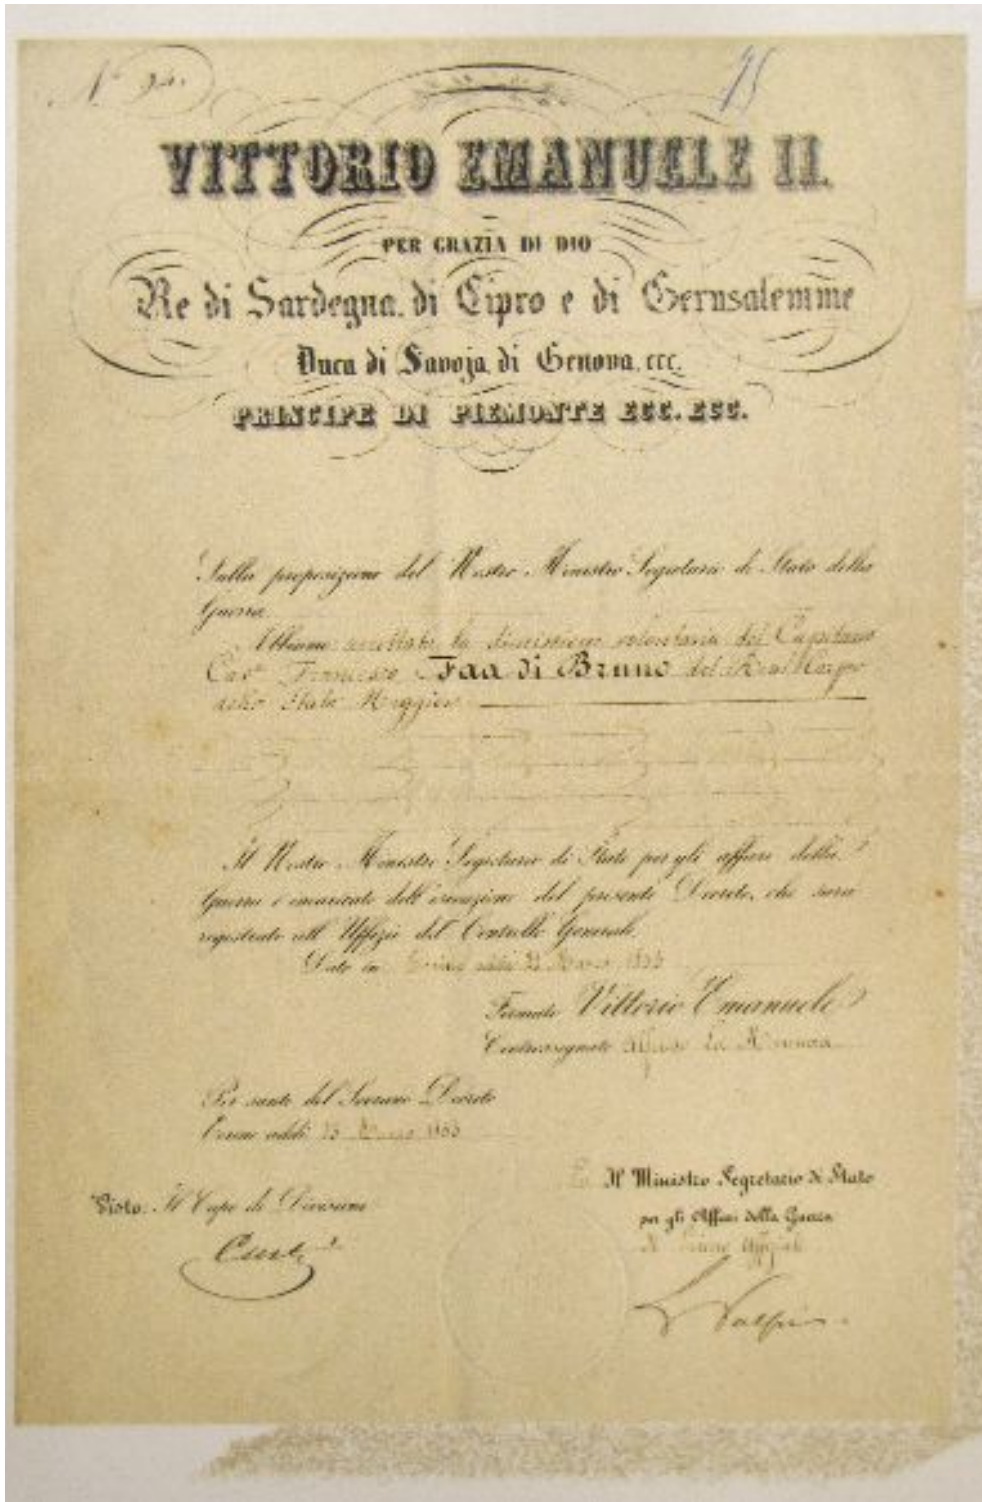 N.º
VITTORIO EMANUELE II.
PER GRAZIA DI DIO
Re di Sardegna, di Cipro e di Gerusalemme
Duca di Savoja, di Genova, ecc.
PRINCIPE DI PIEMONTE ECC. ECC.
Sulla proposizione del Nostro Ministro Segretario di Stato della
Guerra.
Abbiamo accettato la dimissione volontaria del Capitano
Cav.e Francesco Faa di Bruno del Real Corpo
dello Stato Maggiore
Il Nostro Ministro Segretario di Stato per gli affari della
Guerra è incaricato dell'esecuzione del presente Decreto, che sarà
registrato all'Uffizio del Controllo Generale.
Dato in Torino addì Marzo 1853
Firmato Vittorio Emanuele
Contrassegnato Alfonso La Marmora
Per sunto del Sovrano Decreto
Torino addì 1853
Il Ministro Segretario di Stato
Visto: Il Capo di Divisione
per gli Affari della Guerra
Il Primo Uffiziale